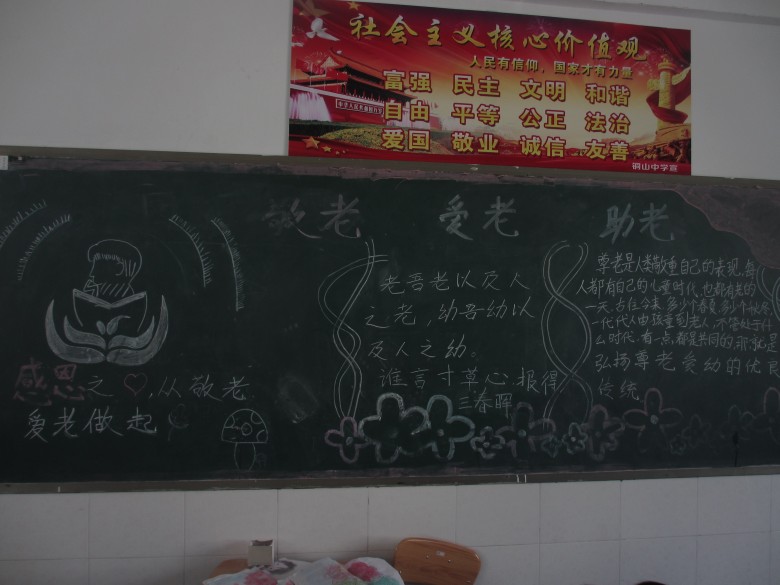 社会主义核心价值观
人民有信仰，国家才有力量
富强 民主 文明 和谐
自由 平等 公正 法治
爱国 敬业 诚信 友善
铜山中学宣
敬老 爱老 助老
感恩之心，从敬老
爱老做起
老吾老以及人
之老，幼吾幼以
及人之幼。
谁言寸草心，报得
三春晖
尊老是人类敬重自己的表现，每
人都有自己的儿童时代，也都有老的
一天，古往今来，多少个春夏，多少个秋冬
一代代人由孩童到老人，不管处于什
么时代，有一点，都是共同的，那就是
弘扬尊老爱幼的优良
传统